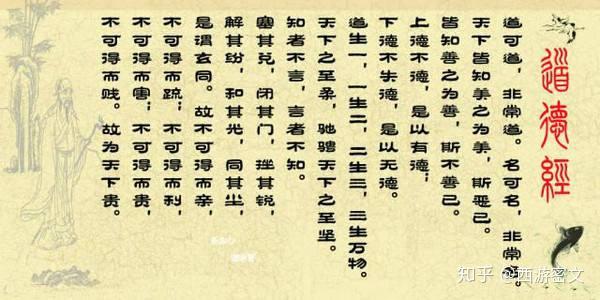 道德经
道可道，非常道。名可名，非常名。
天下皆知美之为美，斯恶已。
皆知善之为善，斯不善已。
上德不德，是以有德；
下德不失德，是以无德。
道生一，一生二，二生三，三生万物。
天下之至柔，驰骋天下之至坚。
知者不言，言者不知。
塞其兑，闭其门，挫其锐，
解其纷，和其光，同其尘，
是谓玄同。故不可得而亲，
不可得而疏；不可得而利，
不可得而害；不可得而贵，
不可得而贱。故为天下贵。
知乎 @西游密文